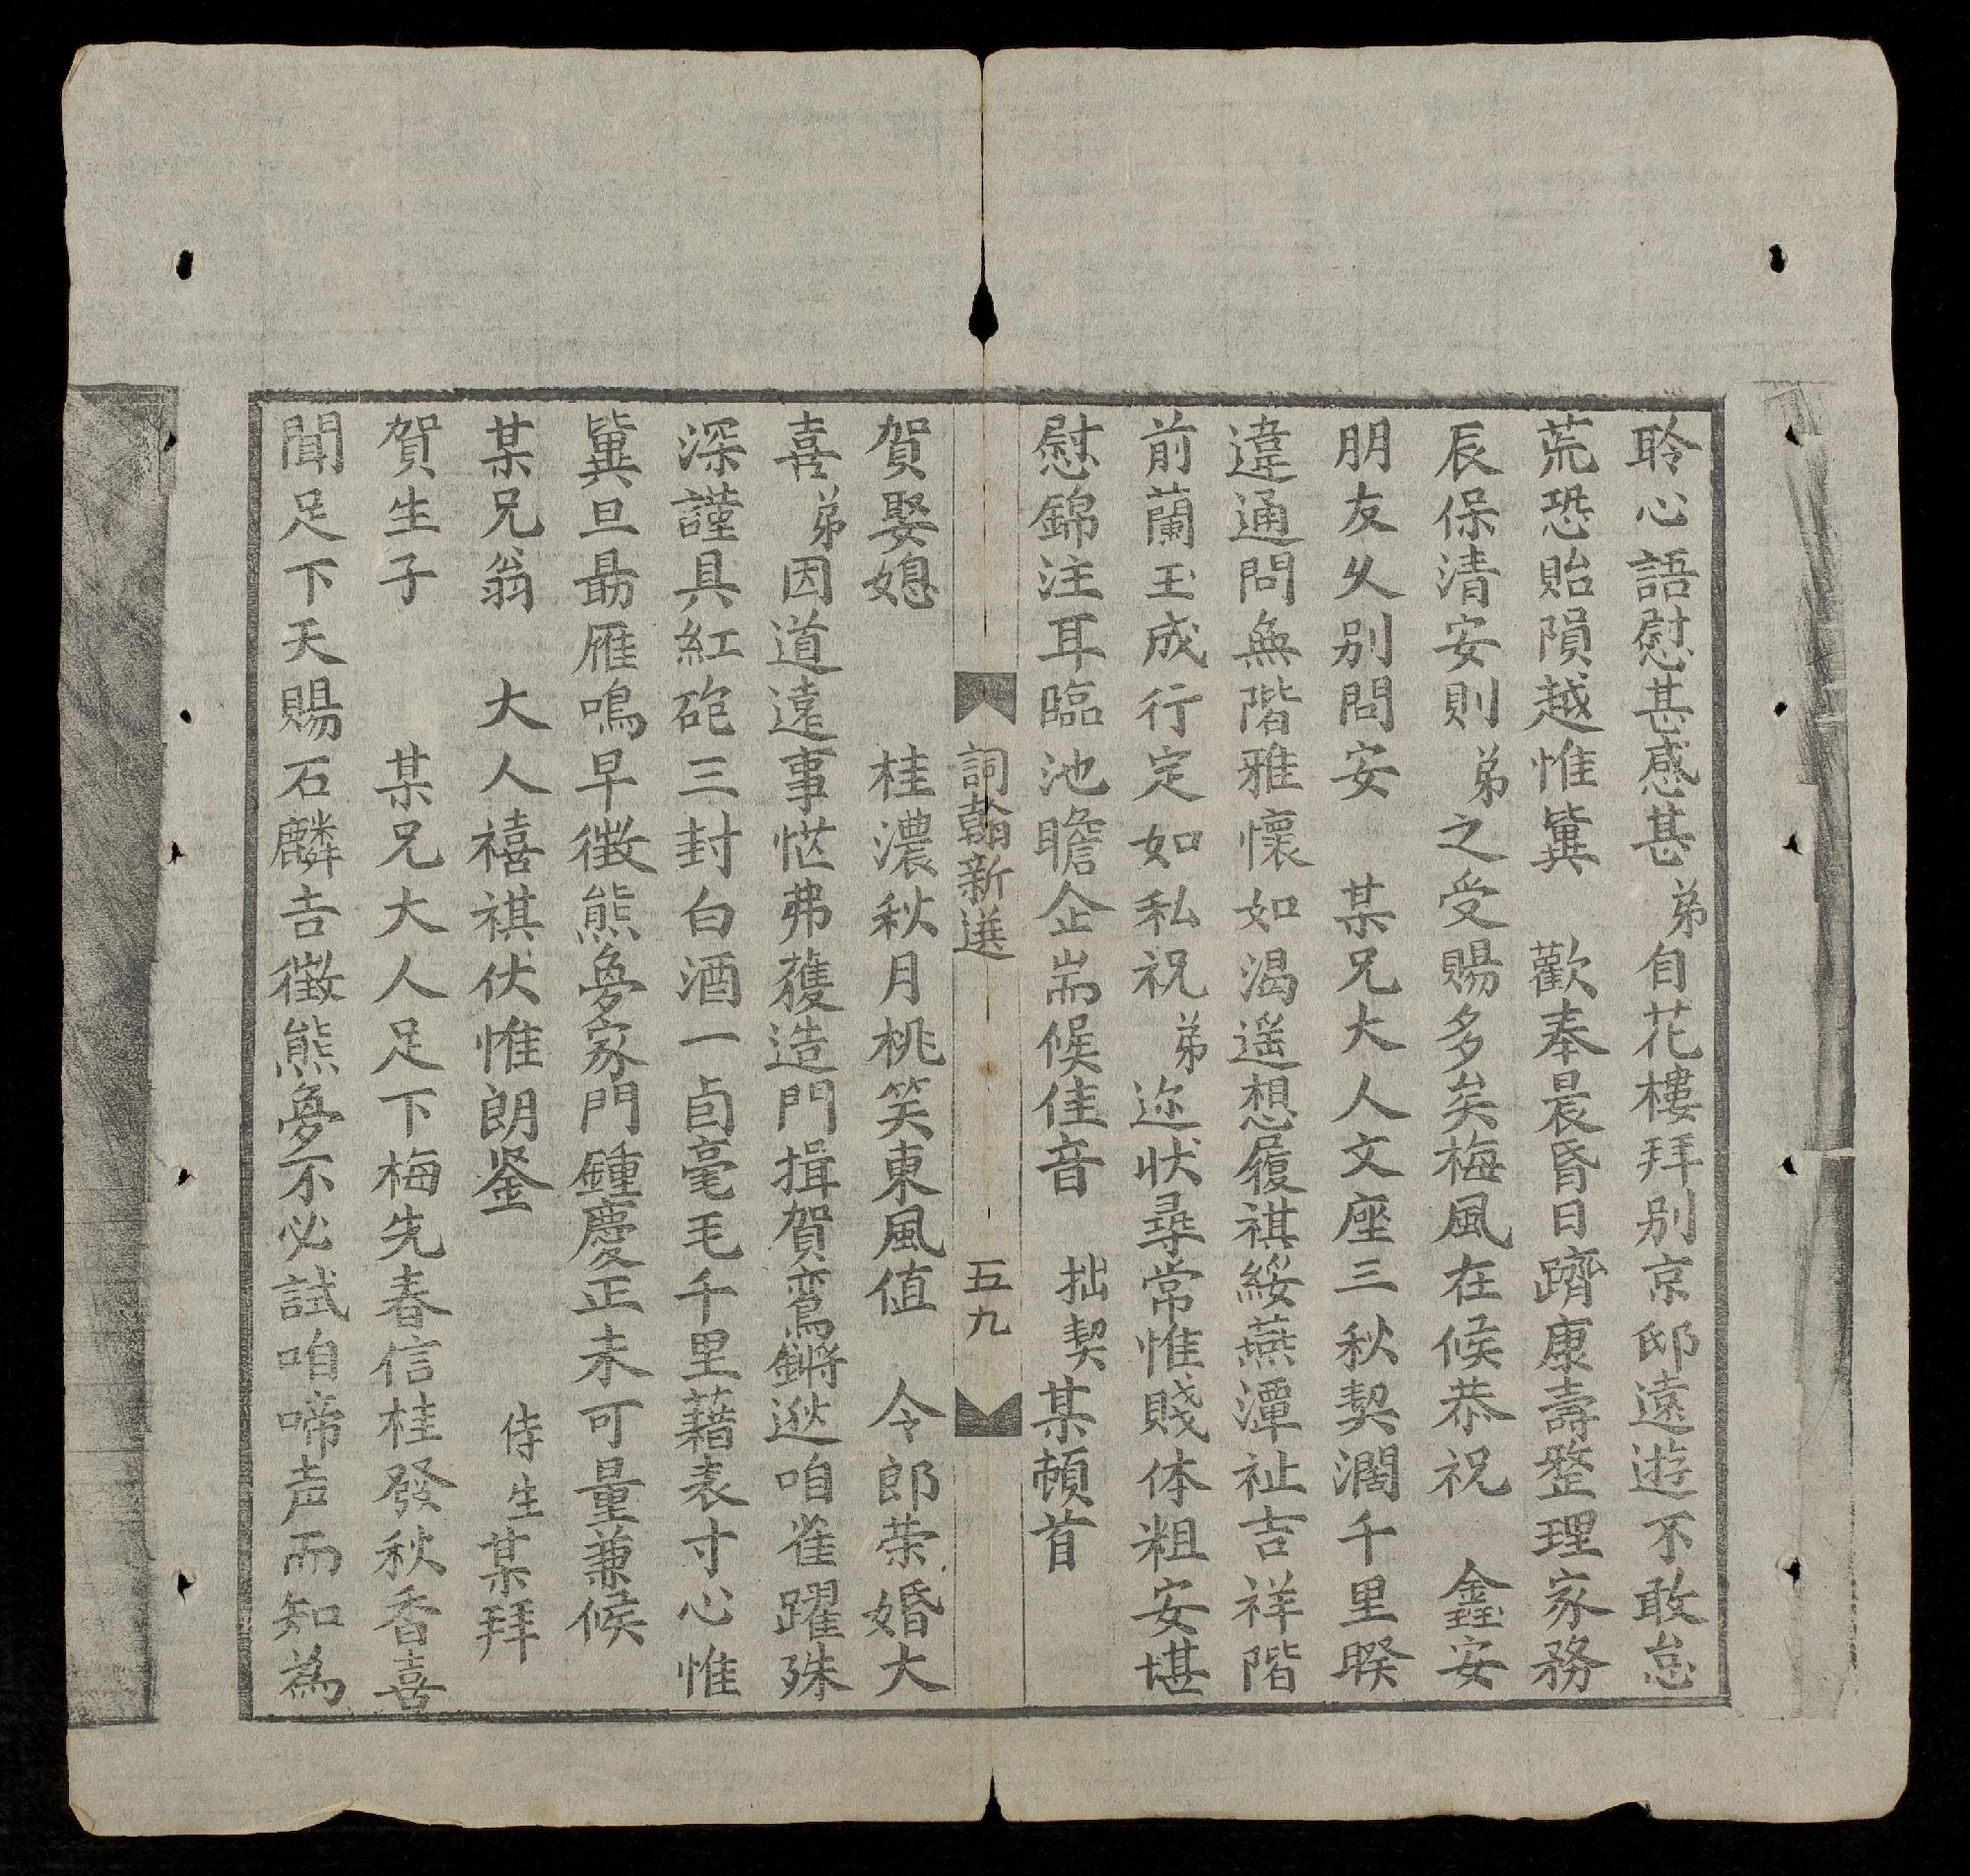 聆心語慰甚感甚弟自花樓拜別京邸遠遊不敢怠
荒恐貽隕越惟兾 歡奉晨昏日躋康壽整理家務
辰保清安則弟之受賜多矣梅風在候恭祝 鑫安
朋友久别問安 某兄大人文座三秋契濶千里暌
違通問無階雅懷如渴遥想履祺綏燕潭祉吉祥階
前蘭玉成行定如私祝弟迩状尋常惟賤体粗安堪
慰錦注耳臨池瞻企耑候佳音 拙契某頓首
詞翰新選 五九
賀娶媳 桂濃秋月桃笑東風值 令郎荣婚大
喜弟因道遠事惦弗獲造門揖賀鸞鏘迯咱雀躍殊
深謹具紅砲三封白酒一卣毫毛千里藉表寸心惟
兾旦最雁鳴早徵熊夢家門鍾慶正未可量兼候
某兄翁 大人禧祺伏惟朗鉴 侍生某拜
賀生子 某兄大人足下梅先春信桂發秋香喜
聞足下天賜石麟吉徵熊夢不必試咱啼声而知為